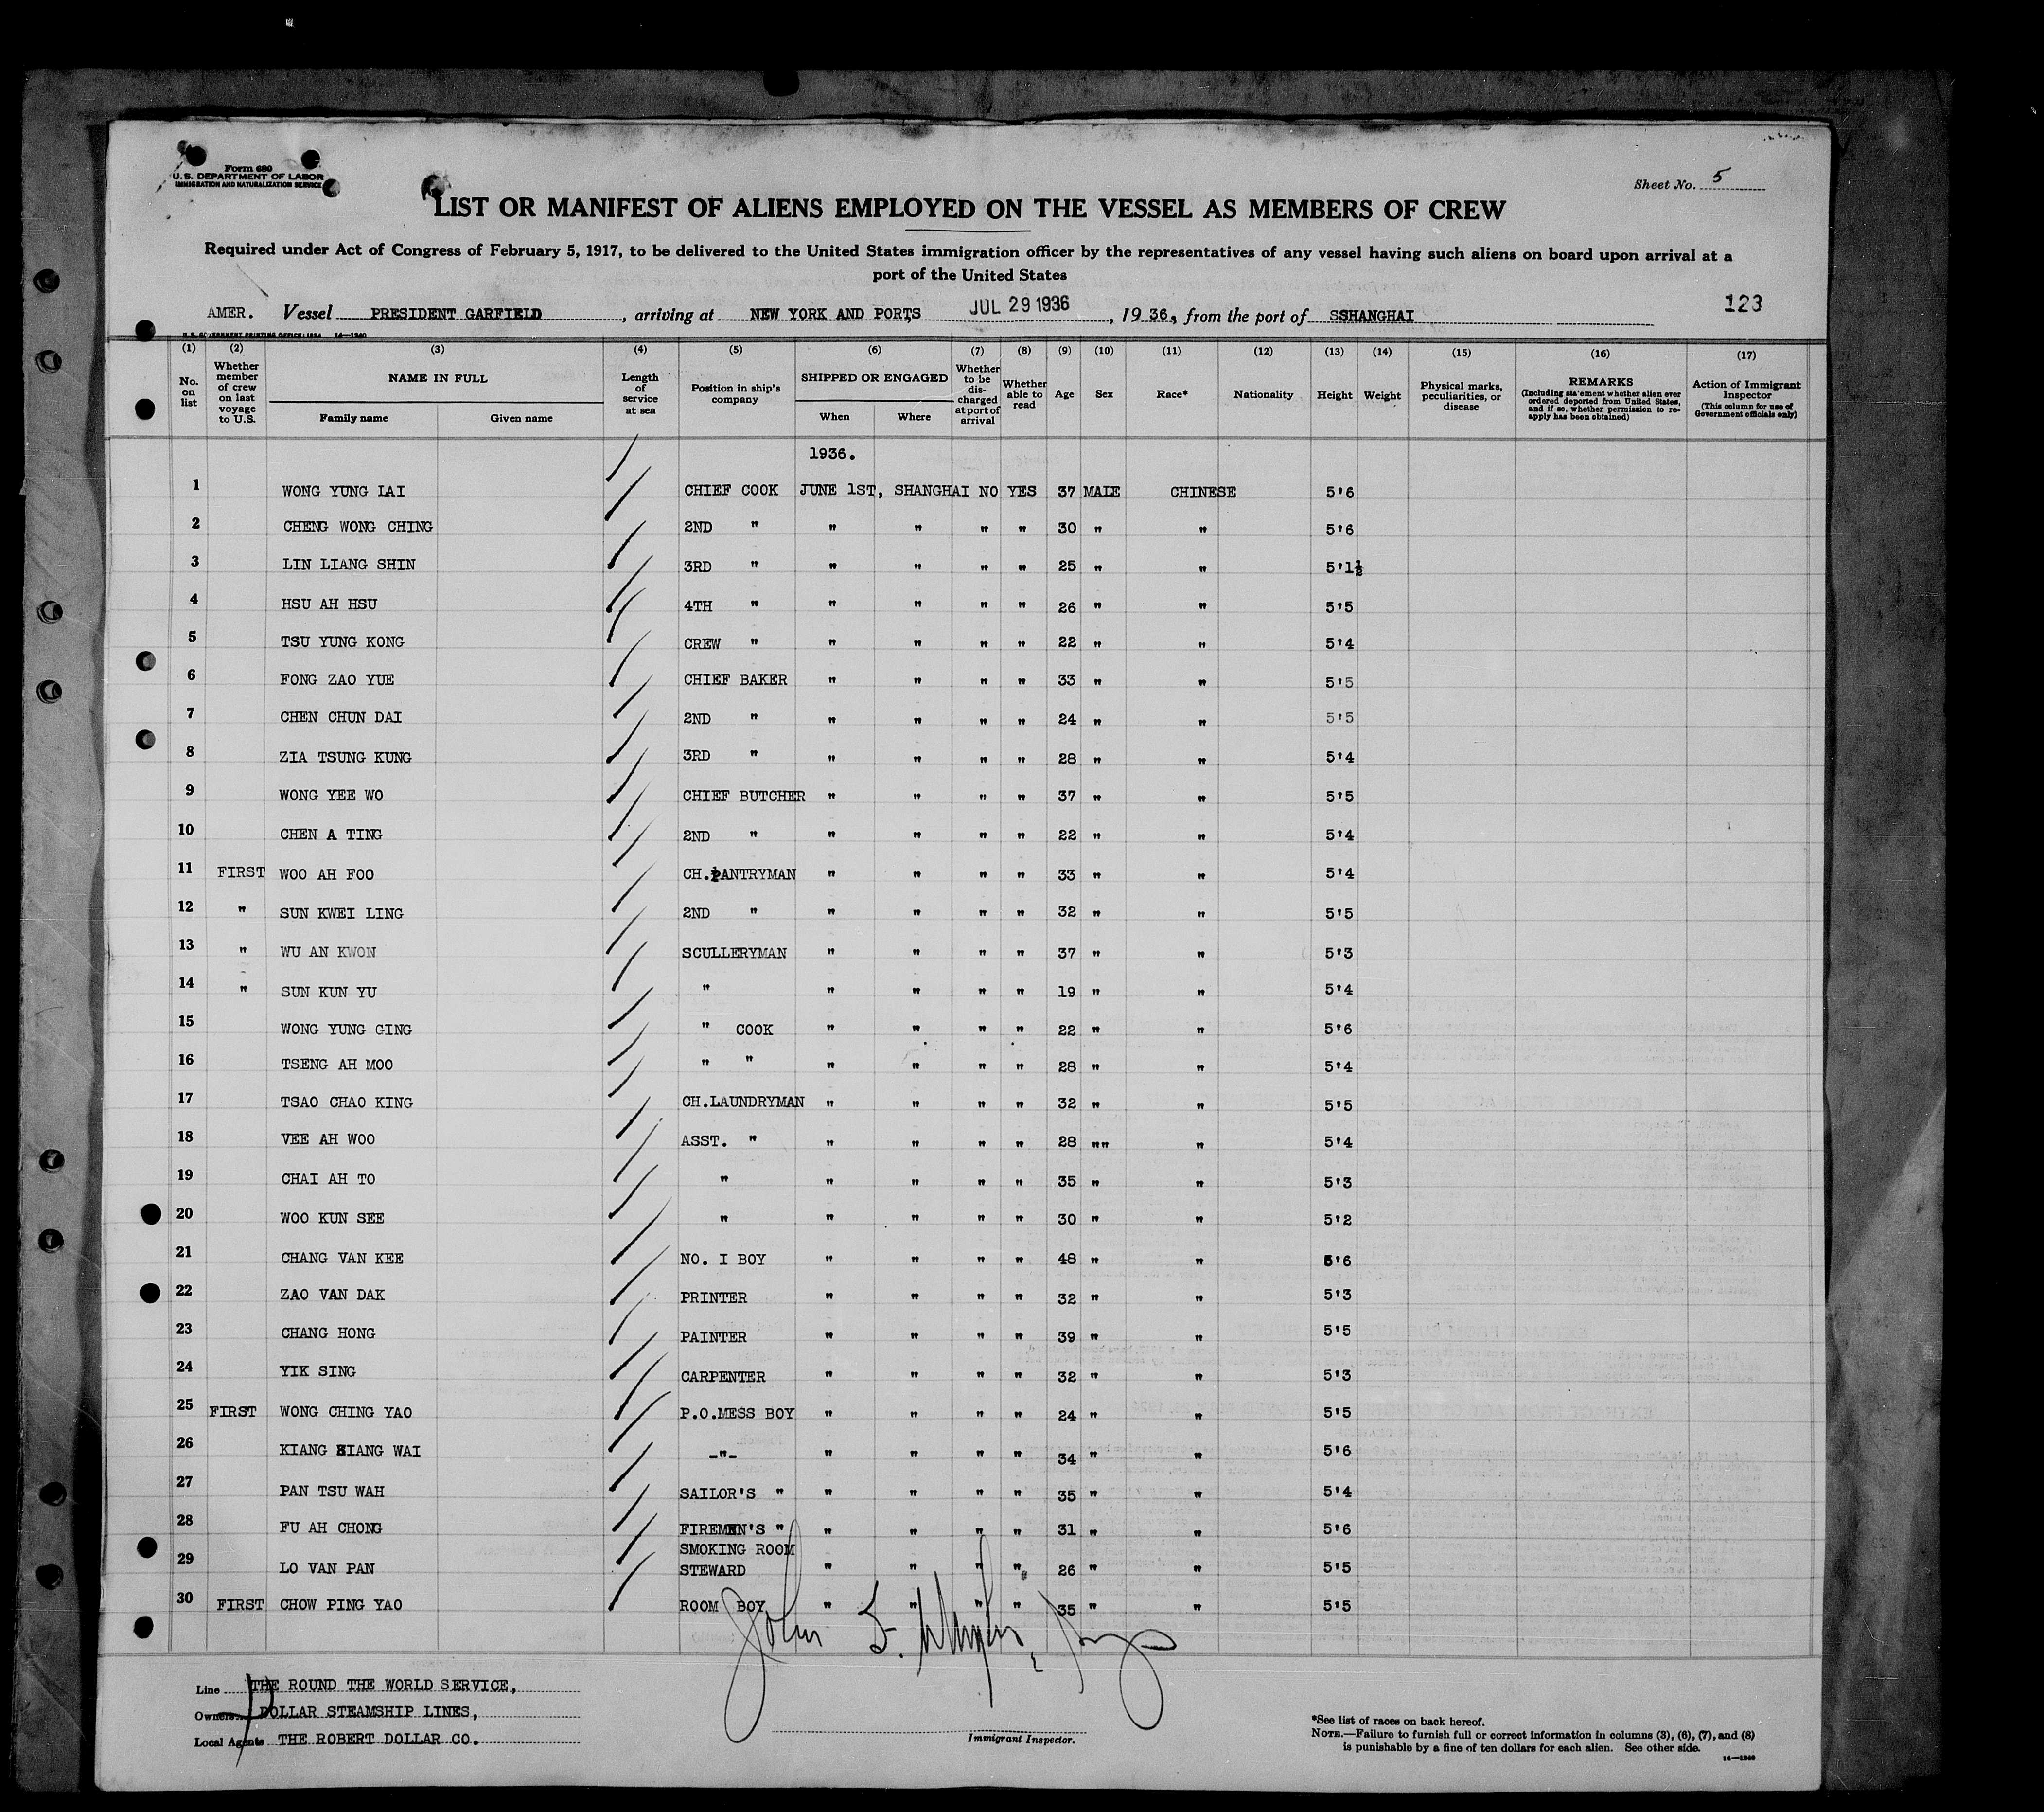 Form 680
U. S. DEPARTMENT OF LABOR
IMMIGRATION AND NATURALIZATION SERVICE
Sheet No. 5
LIST OR MANIFEST OF ALIENS EMPLOYED ON THE VESSEL AS MEMBERS OF CREW
Required under Act of Congress of February 5, 1917, to be delivered to the United States immigration officer by the representatives of any vessel having such aliens on board upon arrival at a
port of the United States
AMER. Vessel PRESIDENT GARFIELD, arriving at NEW YORK AND PORTS, JUL 29 1936, 1936, from the port of SSHANGHAI 123
U. S. GOVERNMENT PRINTING OFFICE: 1934 14—1240
(1) (2) (3) (4) (5) (6) (7) (8) (9) (10) (11) (12) (13) (14) (15) (16) (17)
No. on list
Whether member of crew on last voyage to U.S.
NAME IN FULL
Family name Given name
Length of service at sea
Position in ship's company
SHIPPED OR ENGAGED
When Where
Whether to be discharged at port of arrival
Whether able to read
Age
Sex
Race*
Nationality
Height
Weight
Physical marks, peculiarities, or disease
REMARKS
(Including statement whether alien ever ordered deported from United States, and if so, whether permission to reapply has been obtained)
Action of Immigrant Inspector
(This column for use of Government officials only)
1936.
1 WONG YUNG LAI CHIEF COOK JUNE 1ST, SHANGHAI NO YES 37 MALE CHINESE 5'6
2 CHENG WONG CHING 2ND " " " " " 30 " " 5'6
3 LIN LIANG SHIN 3RD " " " " " 25 " " 5'1½
4 HSU AH HSU 4TH " " " " " 26 " " 5'5
5 TSU YUNG KONG CREW " " " " " 22 " " 5'4
6 FONG ZAO YUE CHIEF BAKER " " " " 33 " " 5'5
7 CHEN CHUN DAI 2ND " " " " " 24 " " 5'5
8 ZIA TSUNG KUNG 3RD " " " " " 28 " " 5'4
9 WONG YEE WO CHIEF BUTCHER " " " " 37 " " 5'5
10 CHEN A TING 2ND " " " " " 22 " " 5'4
11 FIRST WOO AH FOO CH.PANTRYMAN " " " " 33 " " 5'4
12 " SUN KWEI LING 2ND " " " " " 32 " " 5'5
13 " WU AN KWON SCULLERYMAN " " " " 37 " " 5'3
14 " SUN KUN YU " " " " " 19 " " 5'4
15 WONG YUNG GING " COOK " " " " 22 " " 5'6
16 TSENG AH MOO " " " " " " 28 " " 5'4
17 TSAO CHAO KING CH.LAUNDRYMAN " " " " 32 " " 5'5
18 VEE AH WOO ASST. " " " " " 28 "" " 5'4
19 CHAI AH TO " " " " " 35 " " 5'3
20 WOO KUN SEE " " " " " 30 " " 5'2
21 CHANG VAN KEE NO. I BOY " " " " 48 " " 5'6
22 ZAO VAN DAK PRINTER " " " " 32 " " 5'3
23 CHANG HONG PAINTER " " " " 39 " " 5'5
24 YIK SING CARPENTER " " " " 32 " " 5'3
25 FIRST WONG CHING YAO P.O.MESS BOY " " " " 24 " " 5'5
26 KIANG SIANG WAI -"- " " " " 34 " " 5'6
27 PAN TSU WAH SAILOR'S " " " " " 35 " " 5'4
28 FU AH CHONG FIREMEN'S " " " " " 31 " " 5'6
29 LO VAN PAN SMOKING ROOM STEWARD " " " " 26 " " 5'5
30 FIRST CHOW PING YAO ROOM BOY " " " " 35 " " 5'5
Line THE ROUND THE WORLD SERVICE,
Owners DOLLAR STEAMSHIP LINES,
Local Agents THE ROBERT DOLLAR CO.
John
Immigrant Inspector.
*See list of races on back hereof.
NOTE.—Failure to furnish full or correct information in columns (3), (6), (7), and (8)
is punishable by a fine of ten dollars for each alien. See other side.
14—1240